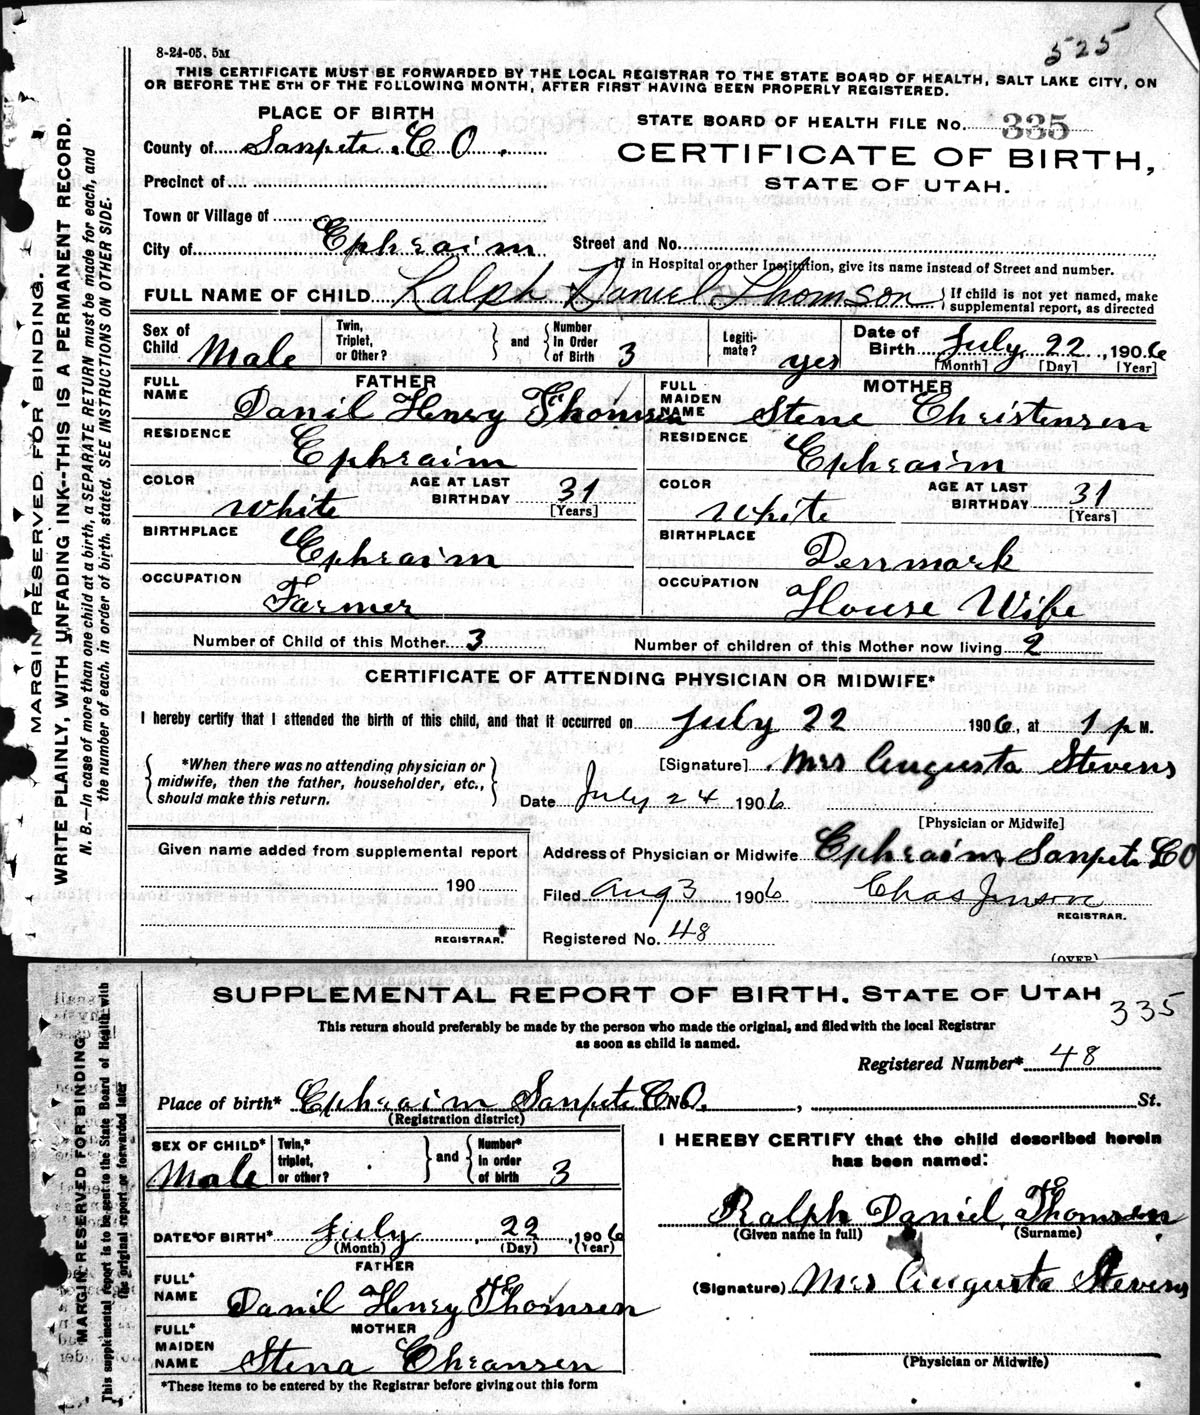 8-24-05. 5M
525
THIS CERTIFICATE MUST BE FORWARDED BY THE LOCAL REGISTRAR TO THE STATE BOARD OF HEALTH, SALT LAKE CITY, ON
OR BEFORE THE 5TH OF THE FOLLOWING MONTH, AFTER FIRST HAVING BEEN PROPERLY REGISTERED.
MARGIN RESERVED FOR BINDING.
WRITE PLAINLY, WITH UNFADING INK--THIS IS A PERMANENT RECORD.
N. B.—In case of more than one child at a birth, a SEPARATE RETURN must be made for each, and
the number of each, in order of birth, stated. SEE INSTRUCTIONS ON OTHER SIDE.
PLACE OF BIRTH
STATE BOARD OF HEALTH FILE No. 335
County of Sanpete CO.
CERTIFICATE OF BIRTH,
STATE OF UTAH.
Precinct of
Town or Village of
City of Ephraim
Street and No.
If in Hospital or other Institution, give its name instead of Street and number.
FULL NAME OF CHILD Ralph Daniel Thomson } If child is not yet named, make
supplemental report, as directed
Sex of Child Male
Twin, Triplet, or Other? } and { Number In Order of Birth 3
Legiti-mate? yes
Date of Birth July 22, 1906
[Month] [Day] [Year]
FATHER
FULL NAME Danil Henry Thomsen
MOTHER
FULL MAIDEN NAME Stene Christensen
RESIDENCE Ephraim
RESIDENCE Ephraim
COLOR White AGE AT LAST BIRTHDAY 31 [Years]
COLOR White AGE AT LAST BIRTHDAY 31 [Years]
BIRTHPLACE Ephraim
BIRTHPLACE Denmark
OCCUPATION Farmer
OCCUPATION House Wife
Number of Child of this Mother 3
Number of children of this Mother now living 2
CERTIFICATE OF ATTENDING PHYSICIAN OR MIDWIFE*
I hereby certify that I attended the birth of this child, and that it occurred on July 22 1906, at 1 p M.
{ *When there was no attending physician or
midwife, then the father, householder, etc.,
should make this return. }
[Signature] Mrs Augusta Stevens
Date July 24 1906
[Physician or Midwife]
Given name added from supplemental report
190
REGISTRAR.
Address of Physician or Midwife Ephraim, Sanpete CO
Filed Aug 3 1906 Chas Jenson
REGISTRAR.
Registered No. 48
(OVER)
MARGIN RESERVED FOR BINDING
This supplemental report is to be sent to the State Board of Health with
the original report or forwarded later
SUPPLEMENTAL REPORT OF BIRTH. STATE OF UTAH
335
This return should preferably be made by the person who made the original, and filed with the local Registrar
as soon as child is named.
Registered Number* 48
Place of birth* Ephraim Sanpete CO. No. , St.
(Registration district)
SEX OF CHILD* Male
Twin,* triplet, or other? } and { Number* In order of birth 3
I HEREBY CERTIFY that the child described herein
has been named:
Ralph Daniel Thomsen
(Given name in full) (Surname)
DATE OF BIRTH* July, 22, 1906
(Month) (Day) (Year)
FATHER
FULL* NAME Danil Henry Thomsen
(Signature) Mrs Augusta Stevens
MOTHER
FULL* MAIDEN NAME Stena Chransen
(Physician or Midwife)
*These items to be entered by the Registrar before giving out this form